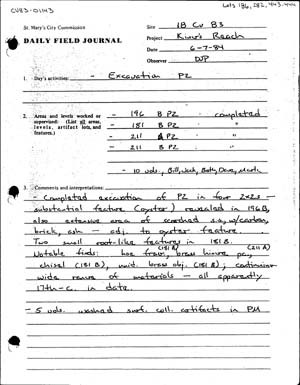 CV83-0143
Lots 186, 182, 443-444
St. Mary's City Commission
DAILY FIELD JOURNAL
Site 18 CV 83
Project King's Reach
Date 6-7-84
Observer DJP
1. Day's activities: - Excavation PZ
2. Areas and levels worked or
supervised: (List all areas,
levels, artifact lots, and
features.)
- 196 B PZ completed
- 181 B PZ "
- 211 A PZ "
- 211 B PZ "
- 10 vols., Bill, Jack, Beth, Dave, Mark
3. Comments and interpretations:
- Completed excavation of PZ in four 2x2s -
substantial feature (oyster) revealed in 196B,
also extensive area of scorched s.s. w/carbon,
brick, ash - adj. to oyster feature.
Two small root-like features in 181B.
Notable finds: hoe (181B), brass pc. (211A),
chisel (181B), unid. brass obj. (181B); continuing
wide range of materials - all apparently
17th-c. in date.
- 5 vols. washed surf. coll. artifacts in PM